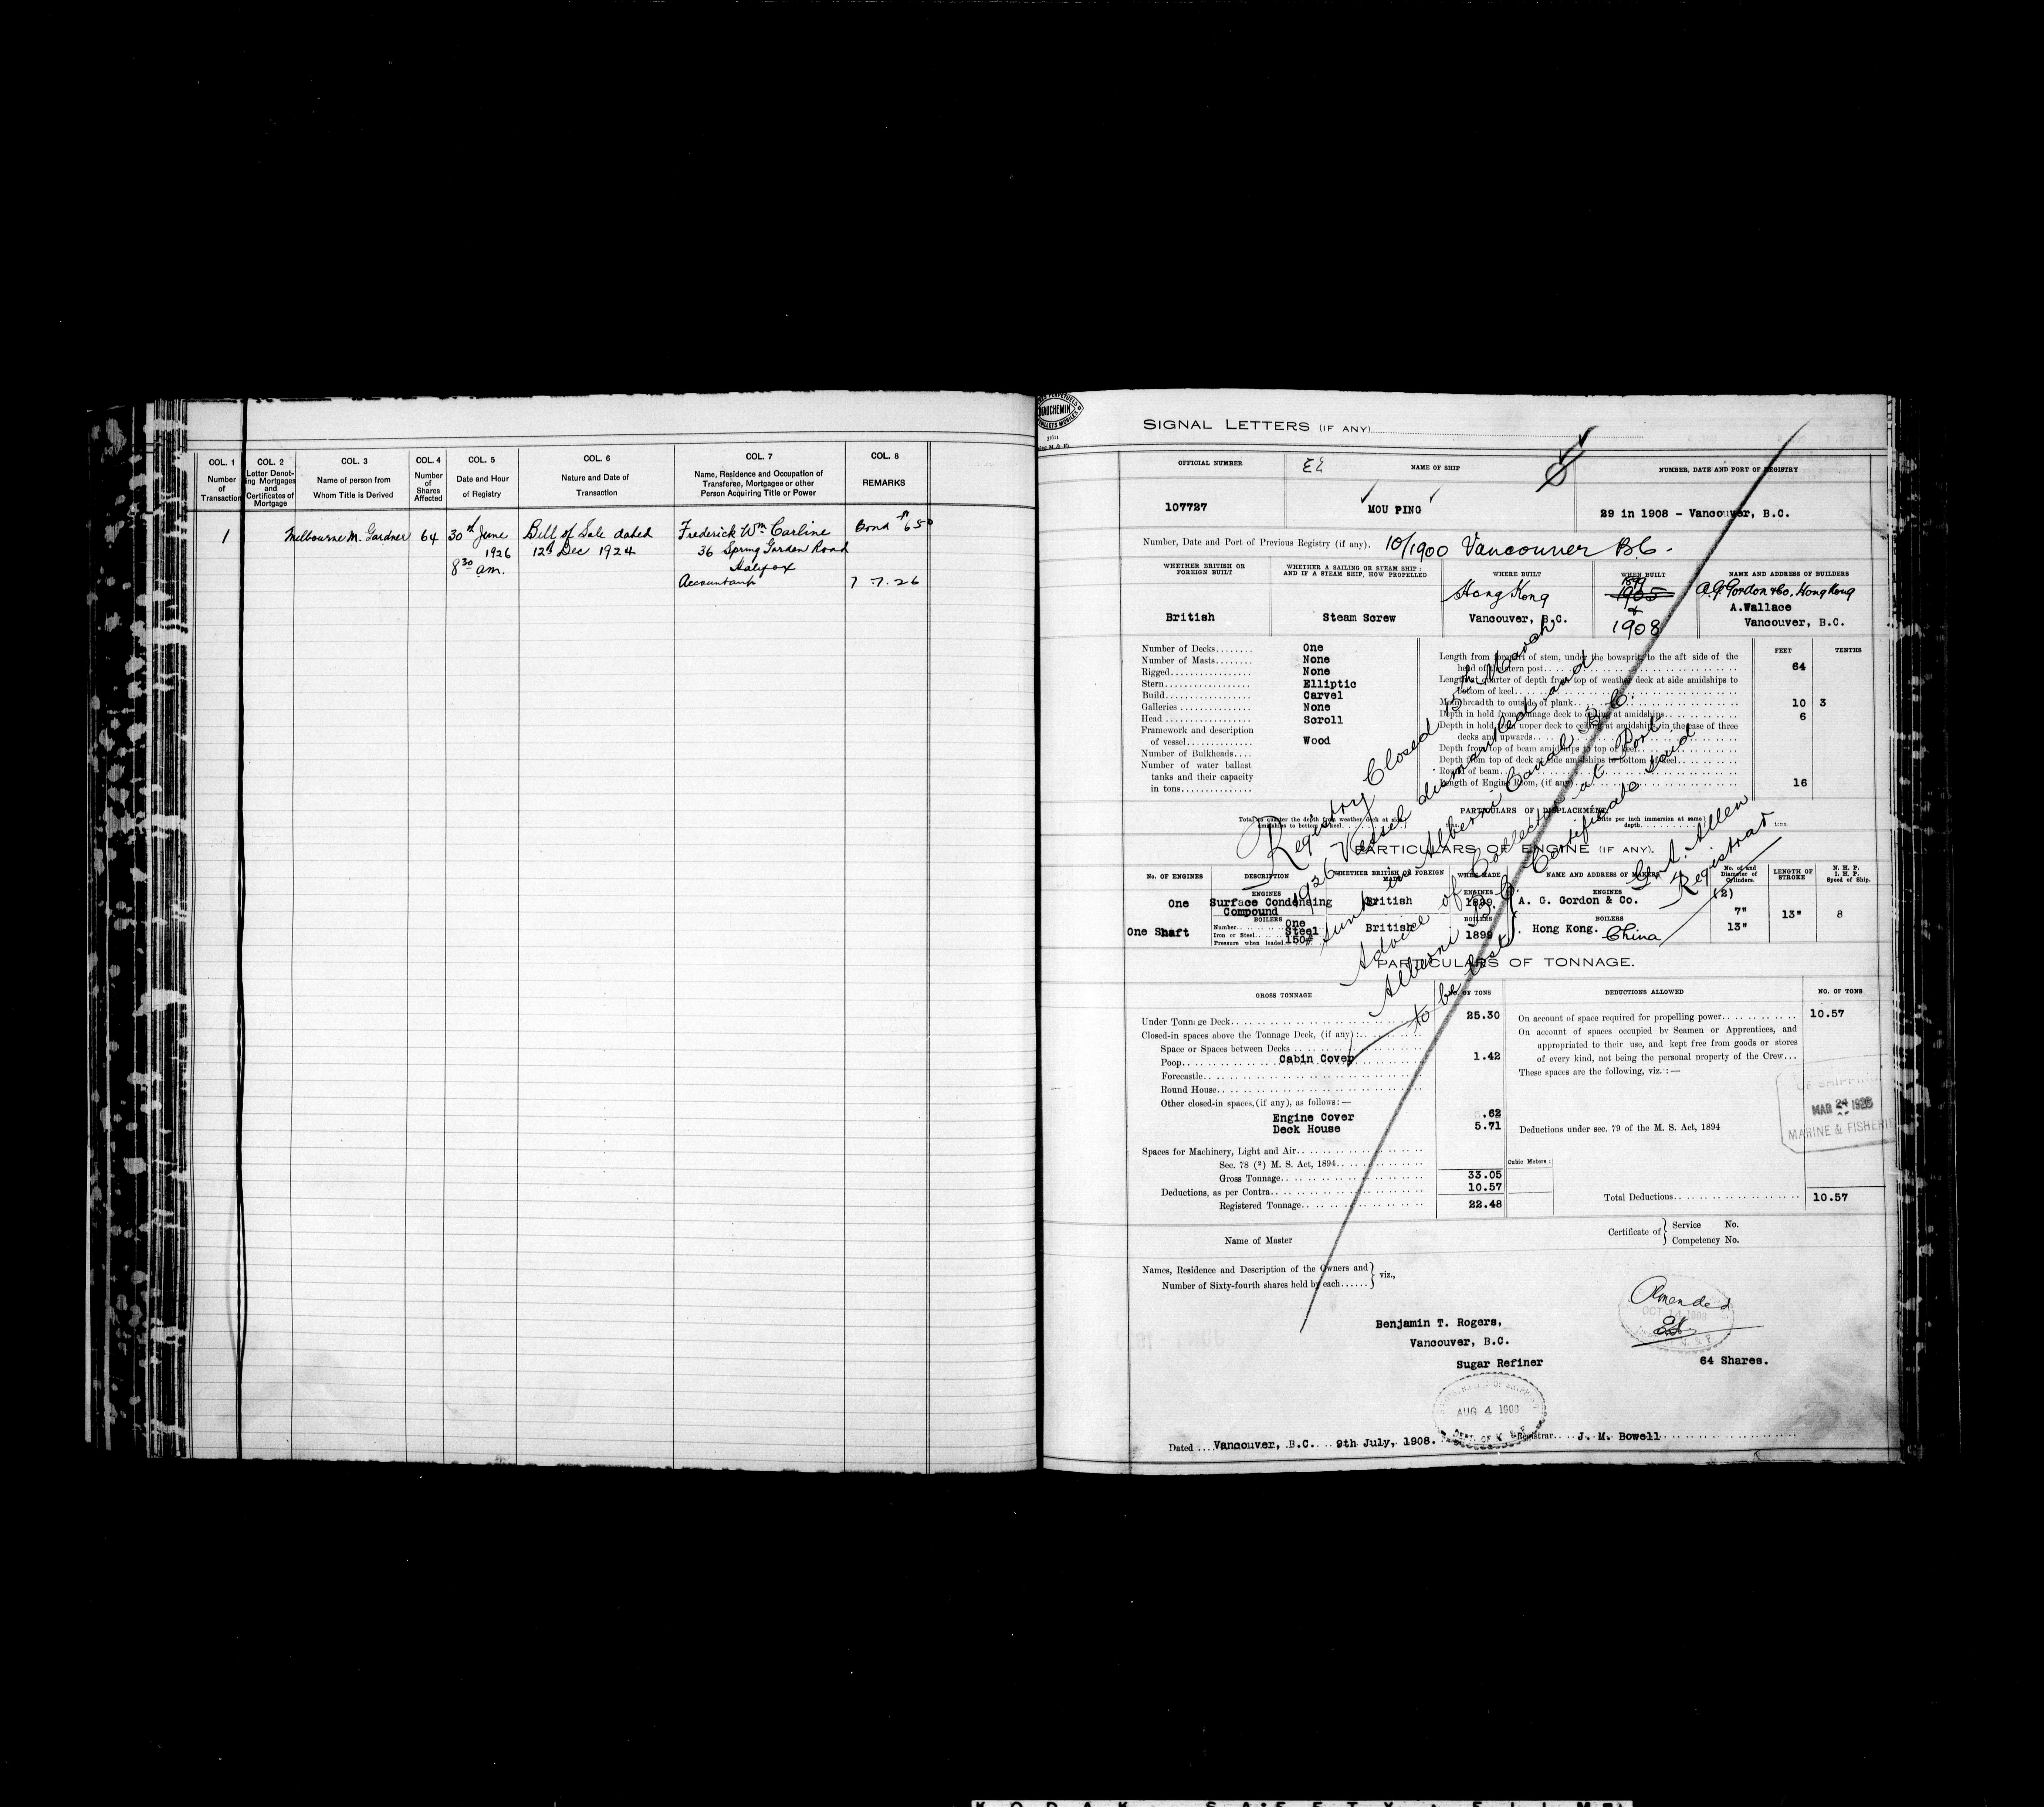 COL. 1
Number
of
Transaction
COL. 2
Letter Denot-
ing Mortgages
and
Certificates of
Mortgage
COL. 3
Name of person from
Whom Title is Derived
COL. 4
Number
of
Shares
Affected
COL. 5
Date and Hour
of Registry
COL. 6
Nature and Date of
Transaction
COL. 7
Name, Residence and Occupation of
Transferee, Mortgagee or other
Person Acquiring Title or Power
COL. 8
REMARKS
1 Melbourne M. Gardner 64 30th June Bill of Sale dated Frederick Wm Carline Bond
1926 12th Dec 1924 36 Spring Garden Road
8 30 am. Halifax
Accountant 7 . 7 . 26
SIGNAL LETTERS (IF ANY)
OFFICIAL NUMBER
NAME OF SHIP
NUMBER, DATE AND PORT OF REGISTRY
107727
MOU PING
29 in 1908 - Vancouver, B.C.
Number, Date and Port of Previous Registry (if any). 10/1900 Vancouver B.C.
WHETHER BRITISH OR
FOREIGN BUILT
WHETHER A SAILING OR STEAM SHIP:
AND IF A STEAM SHIP, HOW PROPELLED
WHERE BUILT
WHEN BUILT
NAME AND ADDRESS OF BUILDERS
British
Steam Screw
Hong Kong
Vancouver, B.C.
1899
1905
&
1908
A.G. Gordon & Co. Hong Kong
A.Wallace
Vancouver, B.C.
Number of Decks........ One
Number of Masts........ None
Rigged................. None
Stern.................. Elliptic
Build.................. Carvel
Galleries .............. None
Head .................. Scroll
Framework and description
of vessel.............. Wood
Number of Bulkheads....
Number of water ballast
tanks and their capacity
in tons...............
FEET TENTHS
Length from forepart of stem, under the bowsprit to the aft side of the
head of the stern post 64
Length at quarter of depth from top of weather deck at side amidships to
bottom of keel
Main breadth to outside of plank 10 3
Depth in hold from tonnage deck to ceiling at amidships 6
Depth in hold from upper deck to ceiling at amidships, in the case of three
decks and upwards
Depth from top of beam amidships to top of keel
Depth from top of deck at side amidships to bottom of keel
Round of beam
Length of Engine Room, (if any) 16
PARTICULARS OF DISPLACEMENT
Registry Closed 15th March
1926 Vessel dismantled and
sunk in Alberni Canal B.C.
Advice of Collector at Port
Alberni B.C. Certificate said
to be lost
G. A. Allen
Registrar
PARTICULARS OF ENGINE (IF ANY).
No. OF ENGINES
DESCRIPTION
WHETHER BRITISH OR FOREIGN
MADE
WHEN MADE
NAME AND ADDRESS OF MAKERS
No. of and
Diameter of
Cylinders.
LENGTH OF
STROKE
N. H. P.
I. H. P.
Speed of Ship.
One
One Shaft
ENGINES
Surface Condensing
Compound
BOILERS
Number One
Iron or Steel Steel
Pressure when loaded 150#
British
British
ENGINES
1899
BOILERS
1899
ENGINES
A. G. Gordon & Co.
BOILERS
Hong Kong. China
(2)
7"
13"
13"
8
PARTICULARS OF TONNAGE.
GROSS TONNAGE
NO. OF TONS
DEDUCTIONS ALLOWED
NO. OF TONS
Under Tonnage Deck 25.30
Closed-in spaces above the Tonnage Deck, (if any):
Space or Spaces between Decks
Poop Cabin Cover 1.42
Forecastle
Round House
Other closed-in spaces, (if any), as follows:—
Engine Cover .62
Deck House 5.71
Spaces for Machinery, Light and Air
Sec. 78 (2) M. S. Act, 1894
Gross Tonnage 33.05
Deductions, as per Contra 10.57
Registered Tonnage 22.48
Cubic Meters:
On account of space required for propelling power 10.57
On account of spaces occupied by Seamen or Apprentices, and
appropriated to their use, and kept free from goods or stores
of every kind, not being the personal property of the Crew...
These spaces are the following, viz.:—
Deductions under sec. 79 of the M. S. Act, 1894
Total Deductions 10.57
OF SHIPPING
MAR 24 1926
MARINE & FISHERIES
Name of Master
Certificate of } Service No.
Competency No.
Names, Residence and Description of the Owners and
Number of Sixty-fourth shares held by each...... } viz.,
Benjamin T. Rogers,
Vancouver, B.C.
Sugar Refiner
64 Shares.
Amended
OCT 14 1908
AUG 4 1908
Dated ... Vancouver, B.C. 9th July, 1908.
Registrar.... J. M. Bowell